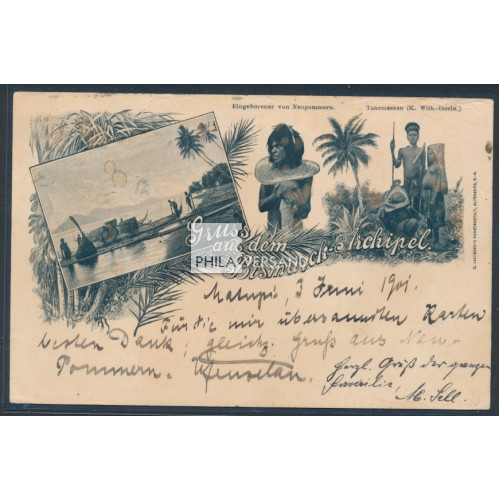 Eingeborener von Neupommern.
Tanzmasken (K. Wilh.-Inseln.)
Gruss
aus dem
Bismarck-Archipel.
PHILA VERSAND
Matupi, 3 Juni 1901.
Für die mir übersandten Karten
besten Dank, gleichz. Gruß aus Neu-
Pommern.
Herzl. Grüß der ganzen
Familie,
M. Sell.